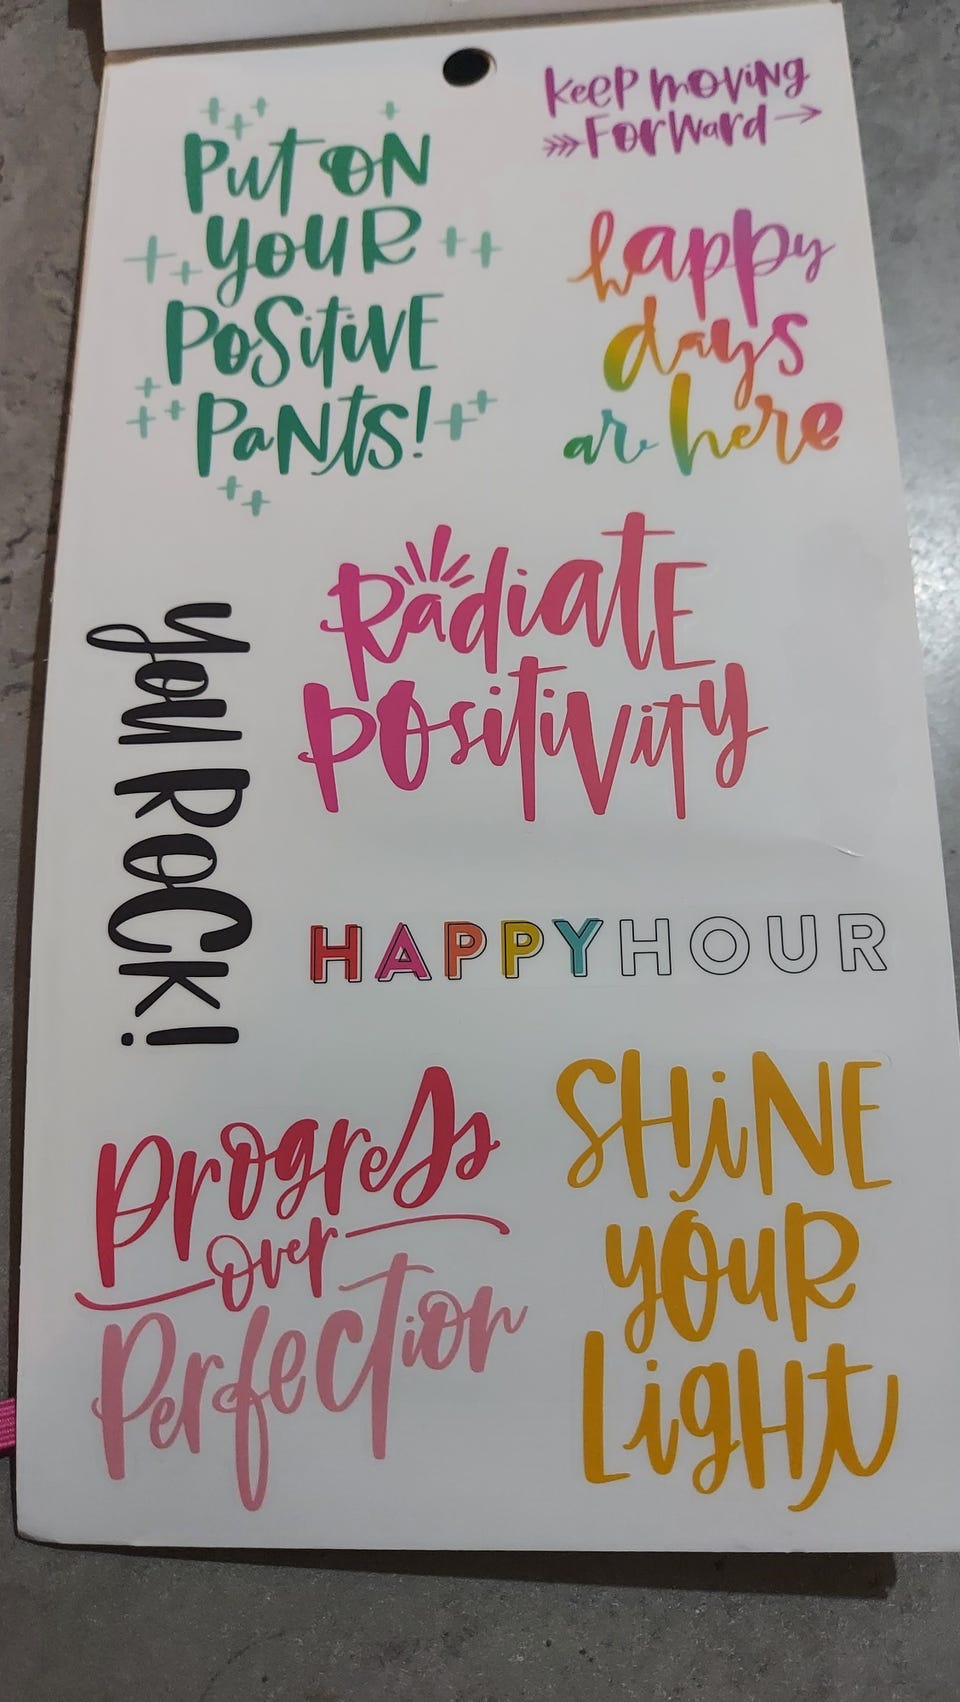 Put ON
YOUR
PoSitiVE
PaNtS!
KeeP MoViNg
ForWard
happy
days
are here
RadiatE
POsitiVity
YOU ROCK!
HAPPYHOUR
Progress
over
Perfection
SHiNE
YOuR
LigHt